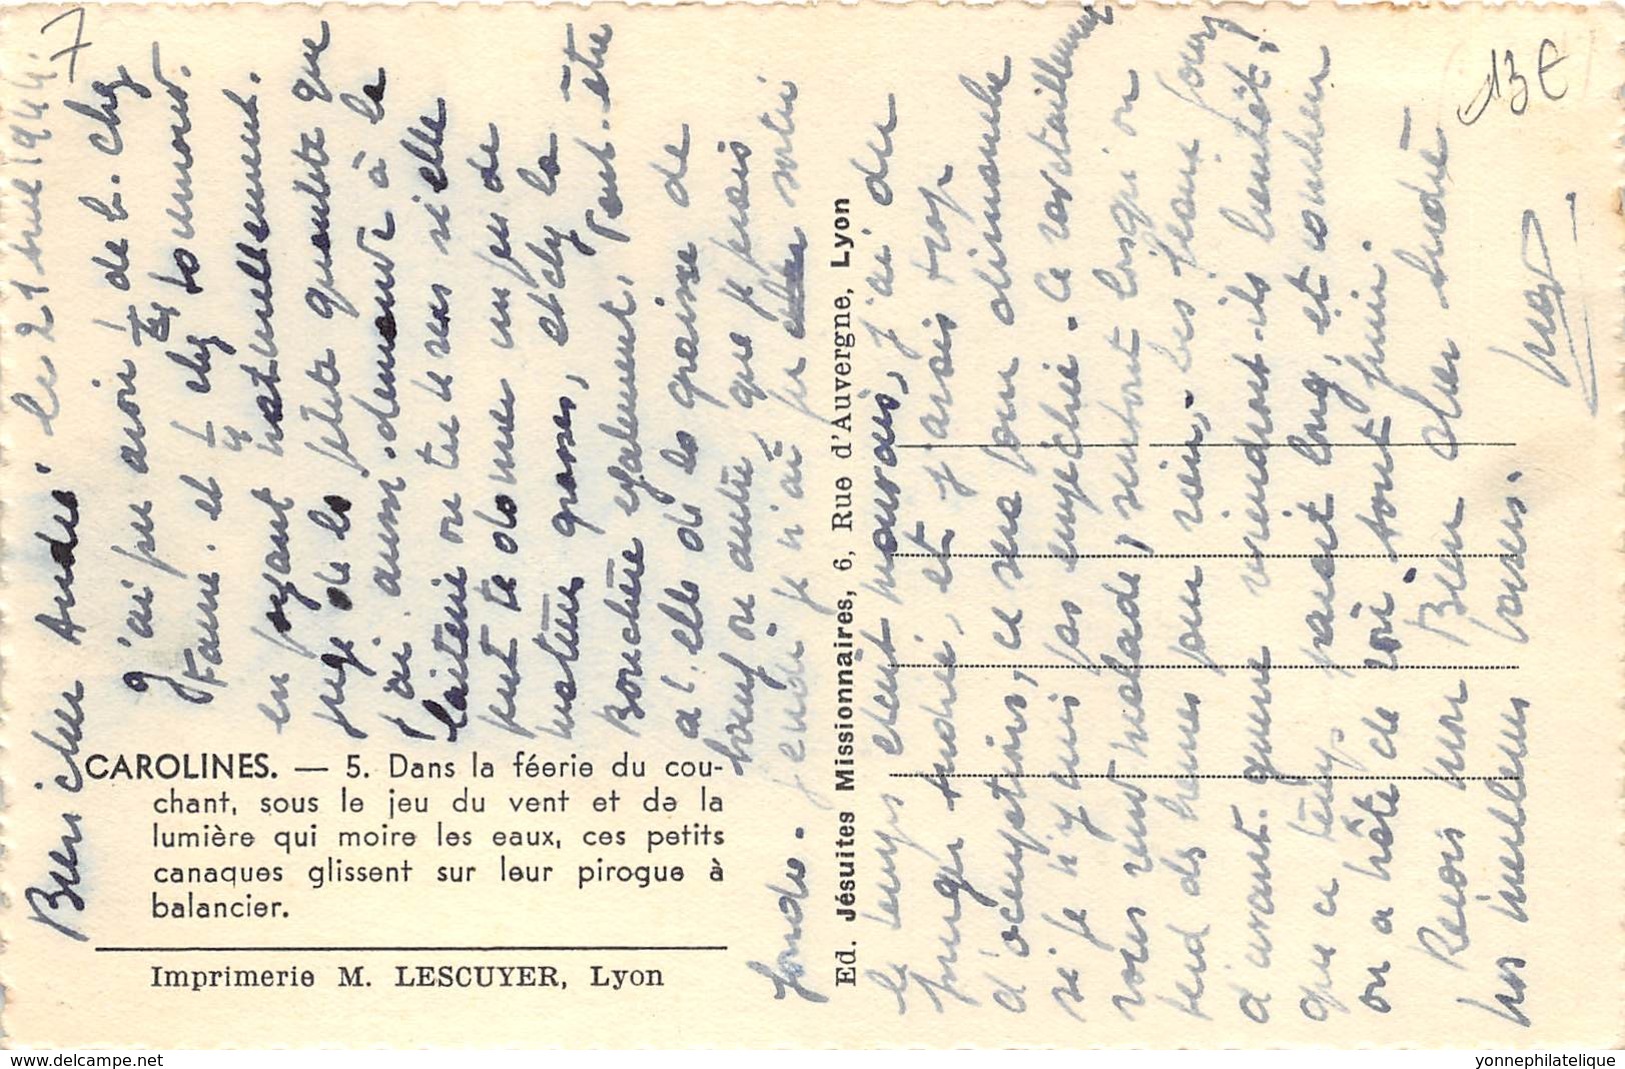 le 21 mai 1944.
7
Bien cher André.
J'ai pu avoir 1 de b. chez
Faure. et 1 chez
en payant naturellement.
juge de la petite quantité que
j'ai. aussi demande à la
laiterie ou tu seras si elle
peut te donner un peu de
matière grasse, et chez la
Bouchère également, peut-être
a t'elle de la graisse de
boeuf ou autre que je puisse
fondre. Jeudi je n'ai pu sortir
le temps était mauvais, j'ai du
André, et j'avais trop
d'occupations, ce sera pour dimanche
si je n'y suis pas empêchée. Ce ravitaillement
vous rend malade, surtout lorsqu'on
perd des heures pour rien.
d'avant guerre viendront-ils bientôt!
que ce temps parait long, et combien
on a hâte de voir tout fini.
Reçois mon Bien cher André
mes meilleurs baisers.
13€
CAROLINES. — 5. Dans la féerie du cou-
chant, sous le jeu du vent et de la
lumière qui moire les eaux, ces petits
canaques glissent sur leur pirogue à
balancier.
Imprimerie M. LESCUYER, Lyon
Ed. Jésuites Missionnaires, 6, Rue d'Auvergne, Lyon
www.delcampe.net
yonnephilatelique